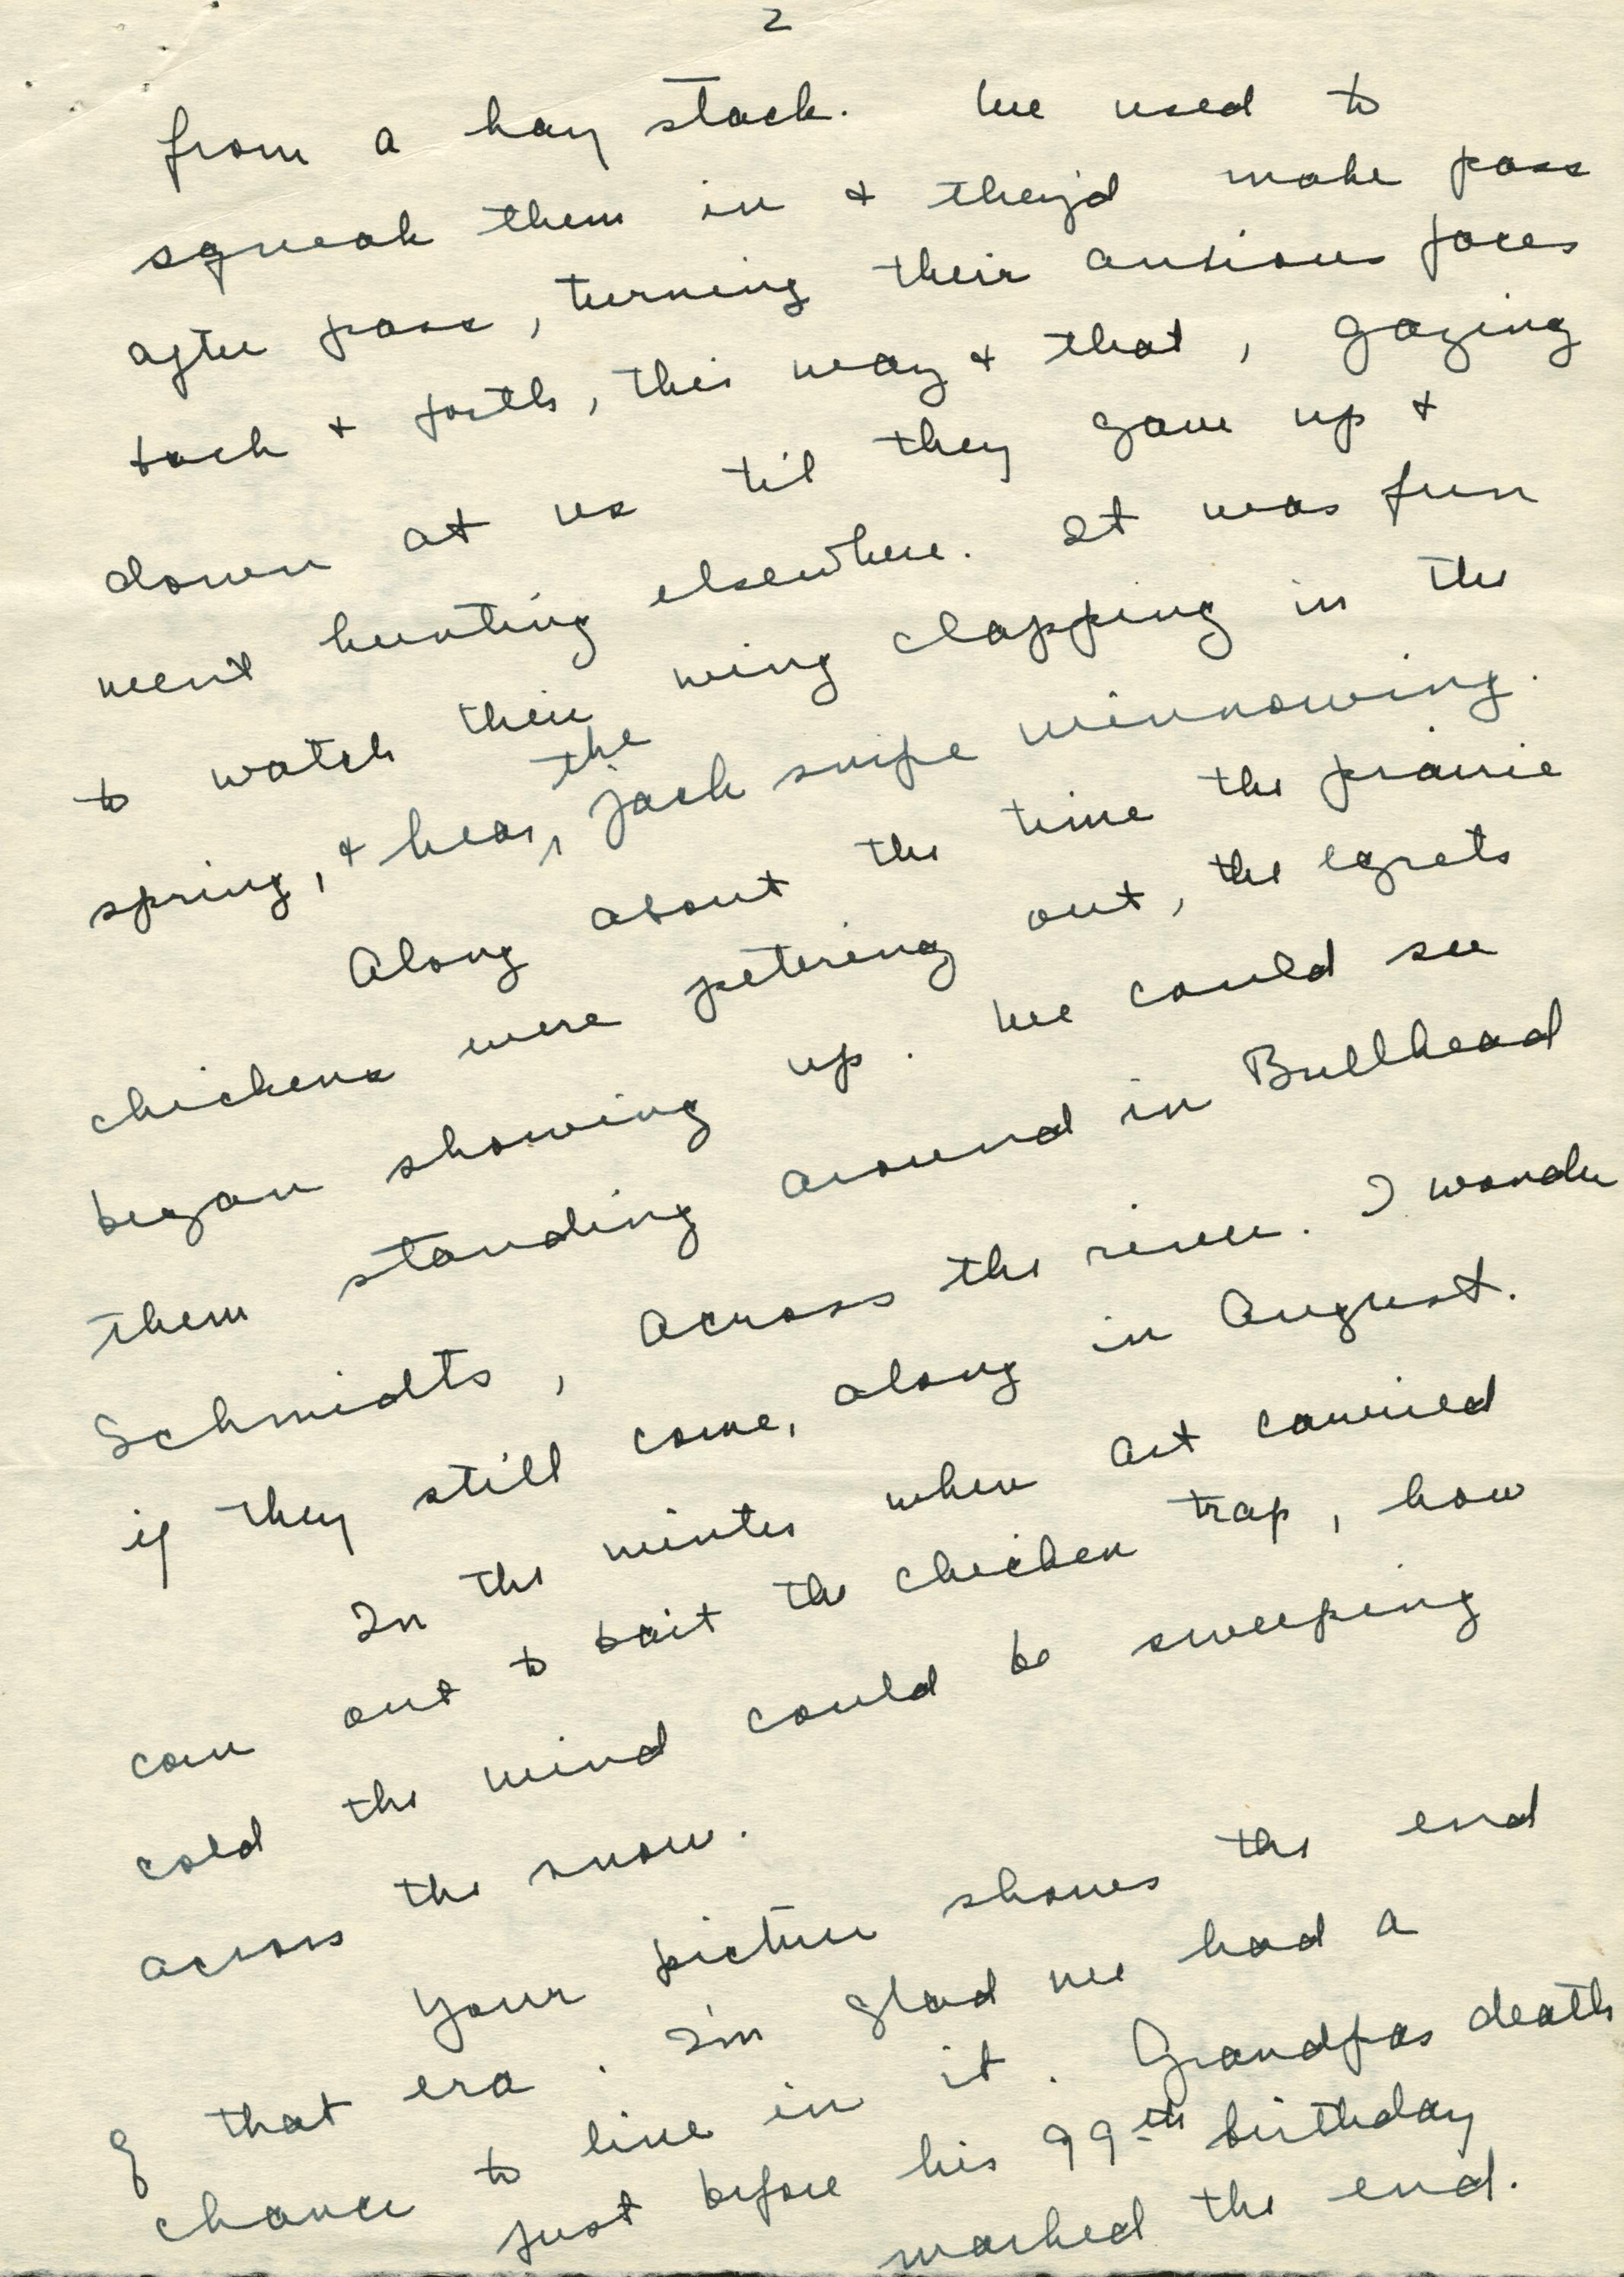 2
from a hay stack. We used to
squeak them in & they'd make pass
after pass, turning their anxious faces
back & forth, this way & that, gazing
down at us til they gave up &
went hunting elsewhere. It was fun
to watch their wing clapping in the
spring, & hear, the jack snipe winnowing.
Along about the time the prairie
chickens were petering out, the egrets
began showing up. We could see
them standing around in Bullhead
Schmidts, across the river. I wonder
if they still come, along in August.
In the winter when Art carried
corn out to bait the chicken trap, how
cold the wind could be sweeping
across the snow.
Your picture shows the end
of that era. I'm glad we had a
chance to live in it. Grandpas death
just before his 99th birthday
marked the end.